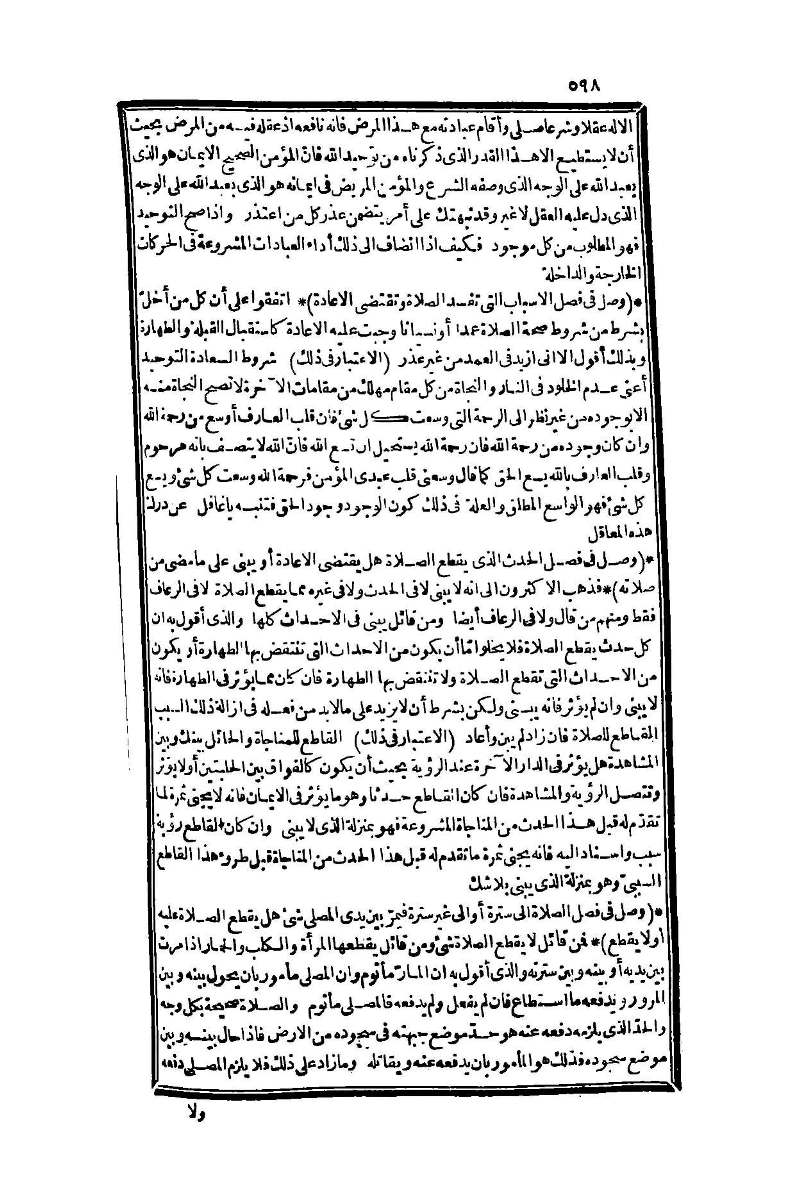 ٥٩٨
الا له عقلا وشرعا صلى وأقام عبادته مع هذا المرض فانه نافعه اذ عقله فيه من المرض بحيث
أن لا يستطيع الا هذا القدر الذى ذكرناه من توحيد الله فانّ المؤمن الصحيح الايمان هو الذى
يعبد الله على الوجه الذى وصفه الشرع والمؤمن المريض فى ايمانه هو الذى يعبد الله على الوجه
الذى دل عليه العقل لا غير وقد نبهتك على أمر يتضمن عذر كل من اعتذر واذا صح التوحيد
فهو المطلوب من كل موجود فكيف اذا انضاف الى ذلك أداء العبادات المشروعة فى الحركات
الخارجة والداخلة
*(وصل فى فصل الاسباب التى تفسد الصلاة وتقتضى الاعادة)* اتفقوا على أن كل من أخلّ
بشرط من شروط صحة الصلاة عمدا أو نسيانا وجبت عليه الاعادة كاستقبال القبلة والطهارة
وبذلك أقول الا انى ازيد فى العمد من غير عذر (الاعتبار فى ذلك) شروط السعادة التوحيد
أعنى عدم الخلود فى النار والنجاة من كل مقام مهلك من مقامات الآخرة لا تصح النجاة منه
الا بوجوده من غير نظر الى الرحمة التى وسعت كل شئ فان قلب العارف أوسع من رحمة الله
وان كان وجوده من رحمة الله فان رحمة الله يستحيل ان تسع الله فانّ الله لا يتصف بانه مرحوم
وقلب العارف بالله يسع الحق كما قال وسعنى قلب عبدى المؤمن فرحمة الله وسعت كل شئ ويسع
كل شئ فهو الواسع المطلق والعلة فى ذلك كون الوجود وجود الحق فتنبه يا غافل عن درك
هذه المعاقل
*(وصل فى فصل الحدث الذى يقطع الصلاة هل يقتضى الاعادة أو يبنى على ما مضى من
صلاته)* فذهب الاكثرون الى انه لا يبنى لا فى الحدث ولا فى غيره مما يقطع الصلاة لا فى الرعاف
فقط ومنهم من قال ولا فى الرعاف أيضا ومن قائل يبنى فى الاحداث كلها والذى أقول به ان
كل حدث يقطع الصلاة فلا يخلو امّا أن يكون من الاحداث التى تنتقض بها الطهارة أو يكون
من الاحداث التى تقطع الصلاة ولا تنتقض بها الطهارة فان كان مما يؤثر فى الطهارة فانه
لا يبنى وان لم يؤثر فانه يبنى ولكن بشرط أن لا يزيد على ما لابد من فعله فى ازالة ذلك السبب
القاطع للصلاة فان زاد لم يبن وأعاد (الاعتبار فى ذلك) القاطع للمناجاة والحائل بينك وبين
المشاهدة هل يؤثر فى الدار الآخرة عند الرؤية بحيث أن يكون كالفواق بين الحلبتين أو لا يؤثر
وتتصل الرؤية والمشاهدة فان كان القاطع حدثا وهو ما يؤثر فى الايمان فانه لا يجنى ثمرة لما
تقدّم له قبل هذا الحدث من المناجاة المشروعة فهو بمنزلة الذى لا يبنى وان كان القاطع رؤية
سبب واستناد اليه فانه يجنى ثمرة ما تقدم له قبل هذا الحدث من المناجاة قبل طروء هذا القاطع
السببىّ وهو بمنزلة الذى يبنى بلا شك
*(وصل فى فصل الصلاة الى سترة أو الى غير سترة فيمرّ بين يدى المصلى شئ هل يقطع الصلاة عليه
أو لا يقطع)* فمن قائل لا يقطع الصلاة شئ ومن قائل يقطعها المرأة والكلب والحمار اذا مرت
بين يديه أو بينه وبين سترته والذى أقول به ان المارّ مأثوم وان المصلى مأمور بان يحول بينه وبين
المرور ويدفعه ما استطاع فان لم يفعل ولم يدفعه فالمصلى مأثوم والصلاة صحيحة بكل وجه
والحدّ الذى يلزمه دفعه عنه هو حدّ موضع جبهته فى سجوده من الارض فاذا حال بينه وبين
موضع سجوده فذلك هو المأمور بان يدفعه عنه ويقاتله وما زاد على ذلك فلا يلزم المصلى دفعه
ولا